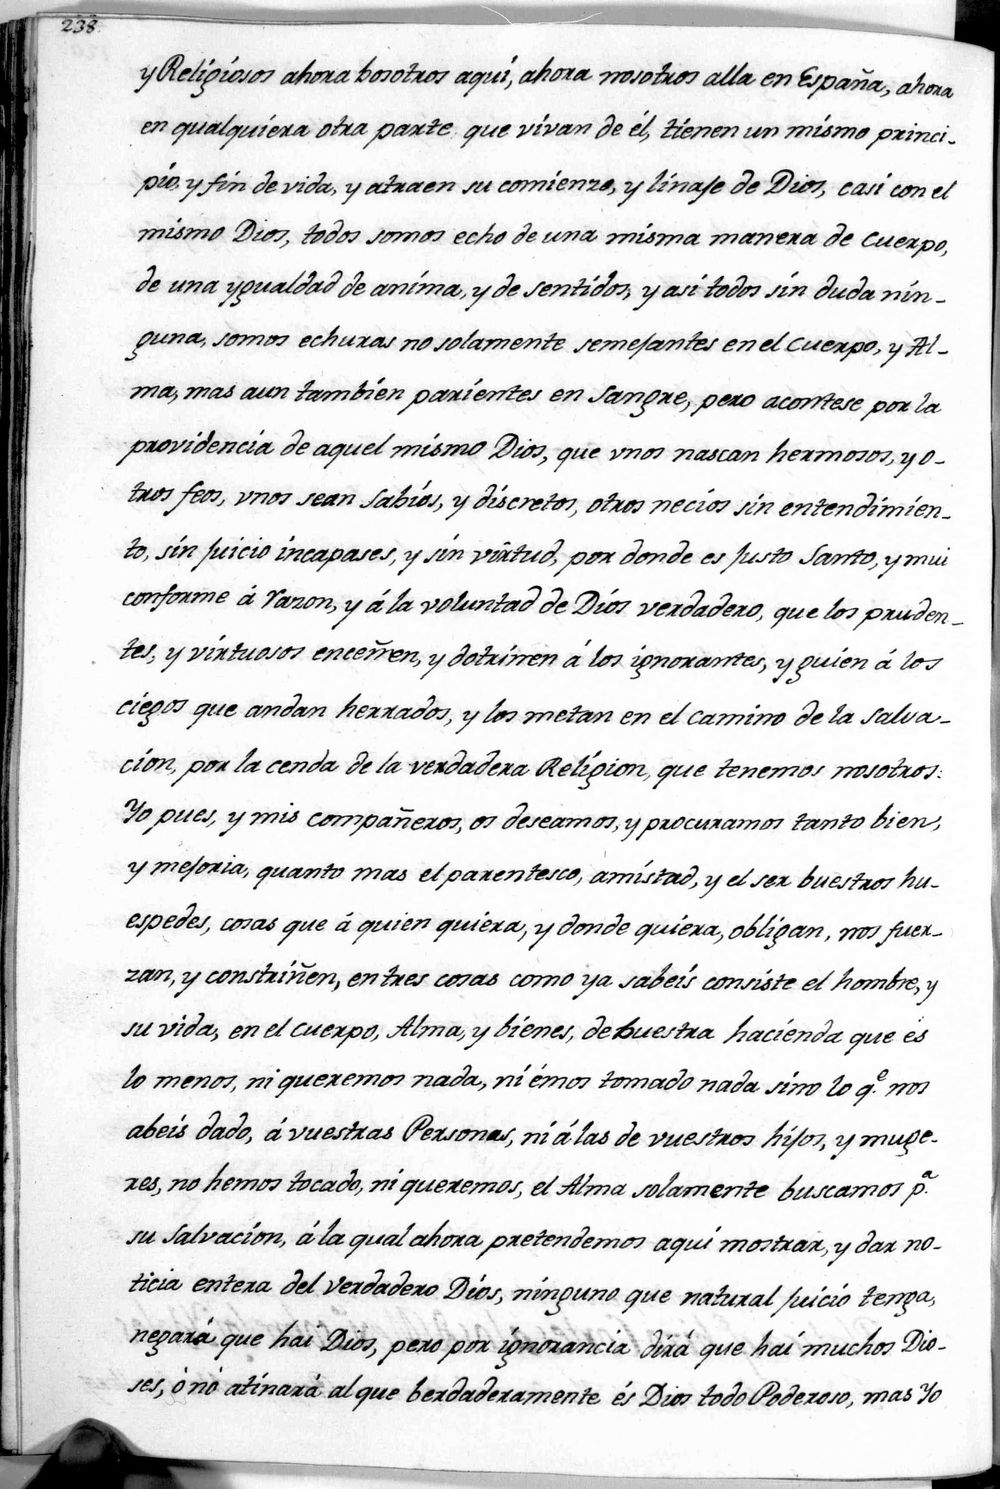 238.
y Religiosos ahora bosotros aquí, ahora nosotros alla en España, ahora
en qualquiera otra parte que vivan de él, tienen un mismo princi-
pio, y fin de vida, y atraen su comienzo, y linaje de Dios, casi con el
mismo Dios, todos somos echo de una misma manera de cuerpo,
de una ygualdad de anima, y de sentidos, y asi todos sin duda nin-
guna, somos echuras no solamente semejantes en el cuerpo, y Al-
ma, mas aun tambien parientes en Sangre, pero acontese por la
providencia de aquel mismo Dios, que vnos nascan hermosos, y o-
tros feos, vnos sean Sabios, y discretos, otros necios sin entendimien-
to, sin juicio incapases, y sin virtud, por donde es justo Santo, y mui
conforme á razon, y á la voluntad de Dios verdadero, que los pruden-
tes, y virtuosos enceñen, y dotrinen á los ignorantes, y guien á los
ciegos que andan herrados, y los metan en el camino de la salva-
cion, por la cenda de la verdadera Religion, que tenemos nosotros:
Yo pues, y mis compañeros, os deseamos, y procuramos tanto bien,
y mejoria, quanto mas el parentesco, amistad, y el ser buestros hu-
espedes, cosas que á quien quiera, y donde quiera, obligan, nos fuer-
zan, y constriñen, en tres cosas como ya sabeis consiste el hombre, y
su vida, en el cuerpo, Alma, y bienes, de buestra hacienda que és
lo menos, ni queremos nada, ni émos tomado nada sino lo q.e nos
abeis dado, á vuestras Personas, ni á las de vuestros hijos, y muge-
res, no hemos tocado, ni queremos, el Alma solamente buscamos p.a
su salvacion, á la qual ahora pretendemos aqui mostrar, y dar no-
ticia entera del verdadero Dios, ninguno que natural juicio tenga,
negará que hai Dios, pero por ignorancia dirá que hai muchos Dio-
ses, ó nó atinará al que berdaderamente és Dios todo Poderoso, mas Yo